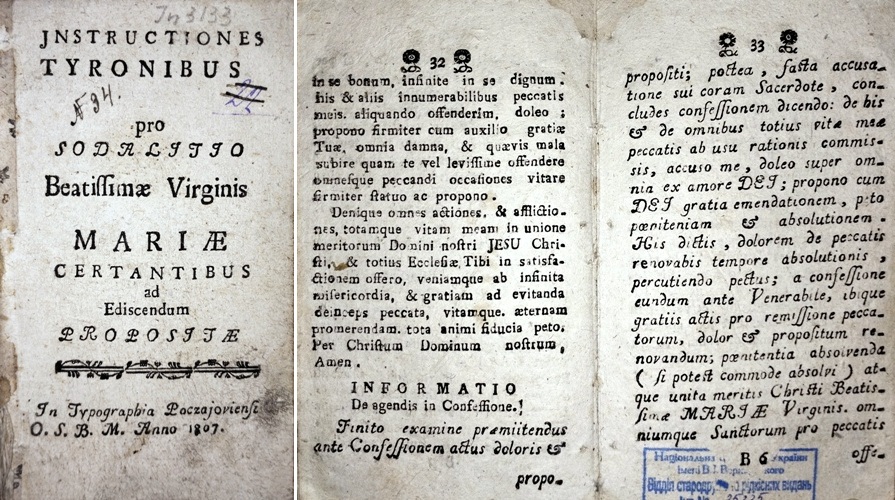 In 3133
JNSTRUCTIONES
TYRONIBUS
N 94.
pro
SODALITIO
Beatissimæ Virginis
MARIÆ
CERTANTIBUS
ad
Ediscendum
PROPOSITÆ
In Typographia Poczajoviensi
O. S. B. M. Anno 1807.
32
in se bonum, infinite in se dignum.
his & aliis innumerabilibus peccatis
meis. aliquando offenderim, doleo ;
propono firmiter cum auxilio gratiæ
Tuæ, omnia damna, & quævis mala
subire quam te vel levissime offendere
omnesque peccandi occasiones vitare
firmiter statuo ac propono.
Denique omnes actiones, & afflictio-
nes, totamque vitam meam in unione
meritorum Domini nostri JESU Chri-
sti, & totius Ecclesiæ, Tibi in satisfa-
ctionem offero, veniamque ab infinita
misericordia, & gratiam ad evitanda
deinceps peccata, vitamque. æternam
promerendam. tota animi fiducia peto.
Per Christum Dominum nostrum,
Amen.
INFORMATIO
De agendis in Confessione.
Finito examine præmittendus
ante Confessionem actus doloris &
propo-
33
propositi; postea, facta accusa-
tione sui coram Sacerdote, con-
cludes confessionem dicendo: de his
& de omnibus totius vitæ meæ
peccatis ab usu rationis commis-
sis, accuso me, doleo super om-
nia ex amore DEJ; propono cum
DEJ gratia emendationem, peto
pœniteniam & absolutionem.
His dictis, dolorem de peccatis
renovabis tempore absolutionis,
percutiendo pectus; a confessione
eundum ante Venerabile, ibique
gratiis actis pro remissione pecca-
torum, dolor & propositum re-
novandum; pœnitentia absolvenda
( si potest commode absolvi ) at-
que unita meritis Christi Beatis-
simæ MARIÆ Virginis. om-
niumque Sanctorum pro peccatis
B 6
offe-
Національна України
імені В.І.
Відділ стародруків та рідкісних видань